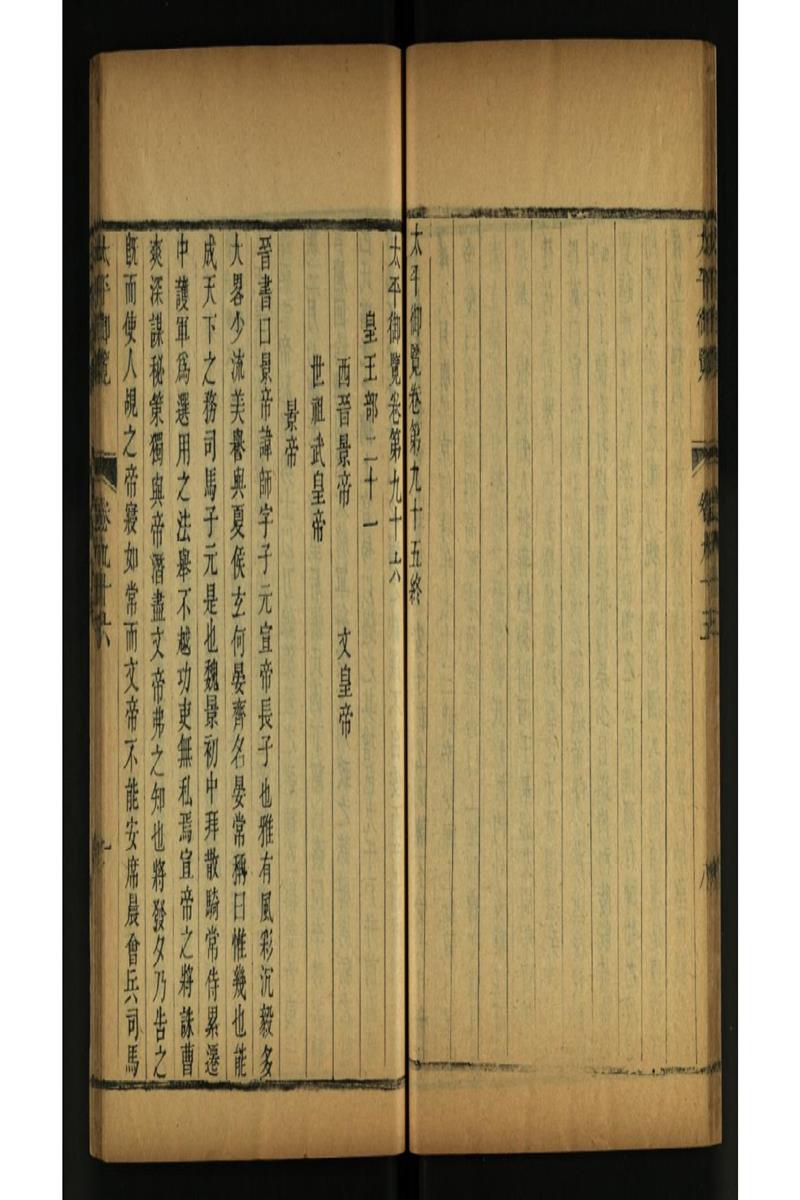 太平御覽
卷九十五
八
太平御覽卷第九十五終
太平御覽卷第九十六
皇王部二十一
西晉景帝 文皇帝
世祖武皇帝
景帝
晉書曰景帝諱師字子元宣帝長子也雅有風彩沉毅多
大畧少流美譽與夏侯玄何晏齊名晏常稱曰惟幾也能
成天下之務司馬子元是也魏景初中拜散騎常侍累遷
中護軍爲選用之法舉不越功吏無私焉宣帝之將誅曹
爽深謀秘策獨與帝潛盡文帝弗之知也將發夕乃告之
旣而使人覘之帝寢如常而文帝不能安席晨會兵司馬
太平御覽
卷九十六